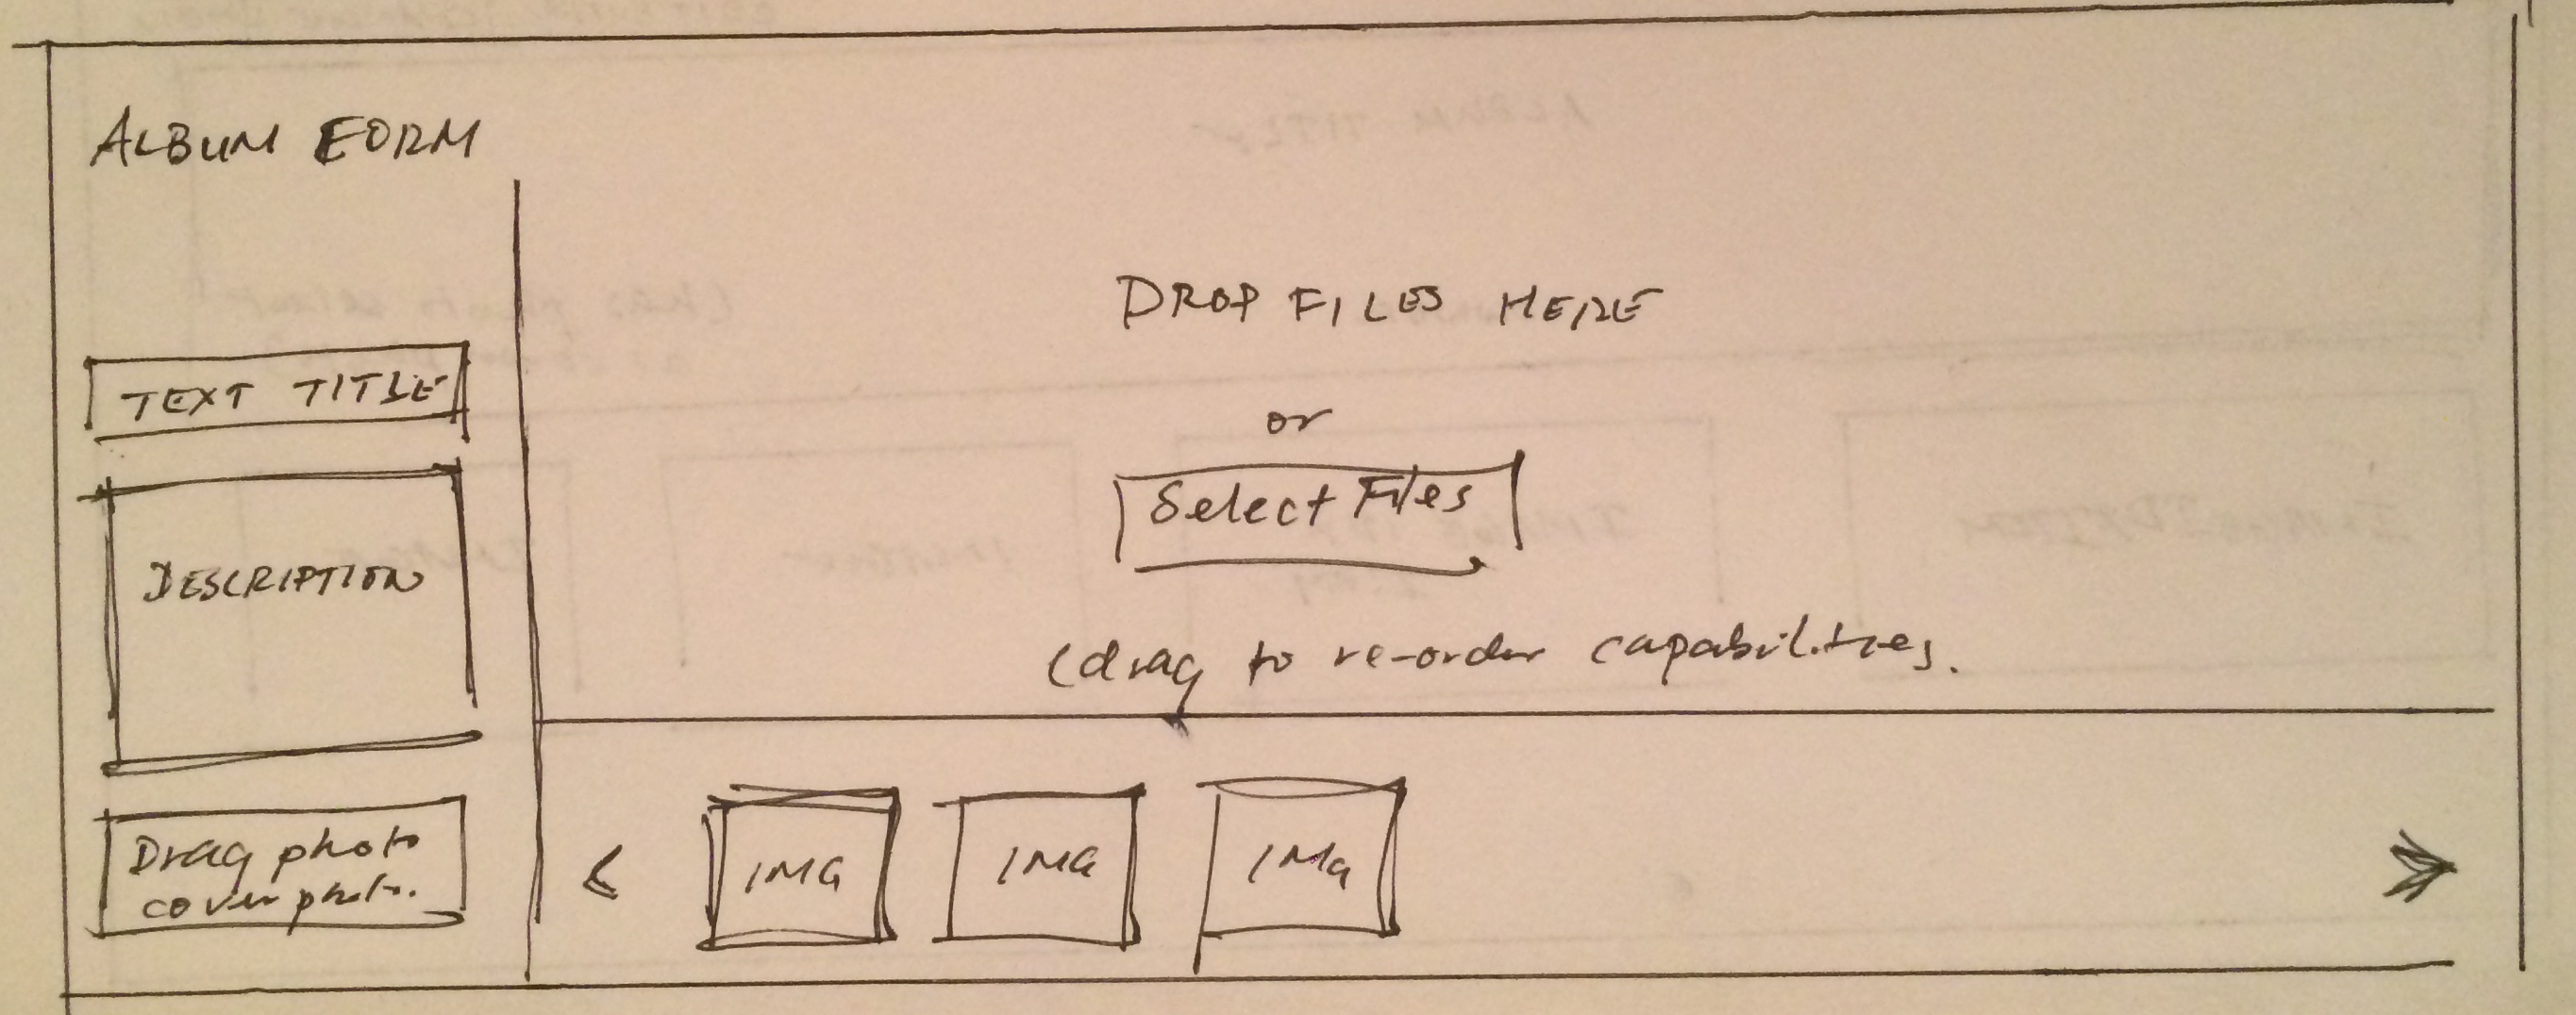 ALBUM FORM
TEXT TITLE
DESCRIPTION
Drag photo
cover photo.
DROP FILES HERE
or
Select Files
(drag to re-order capabilities.
<
IMG
IMG
IMG